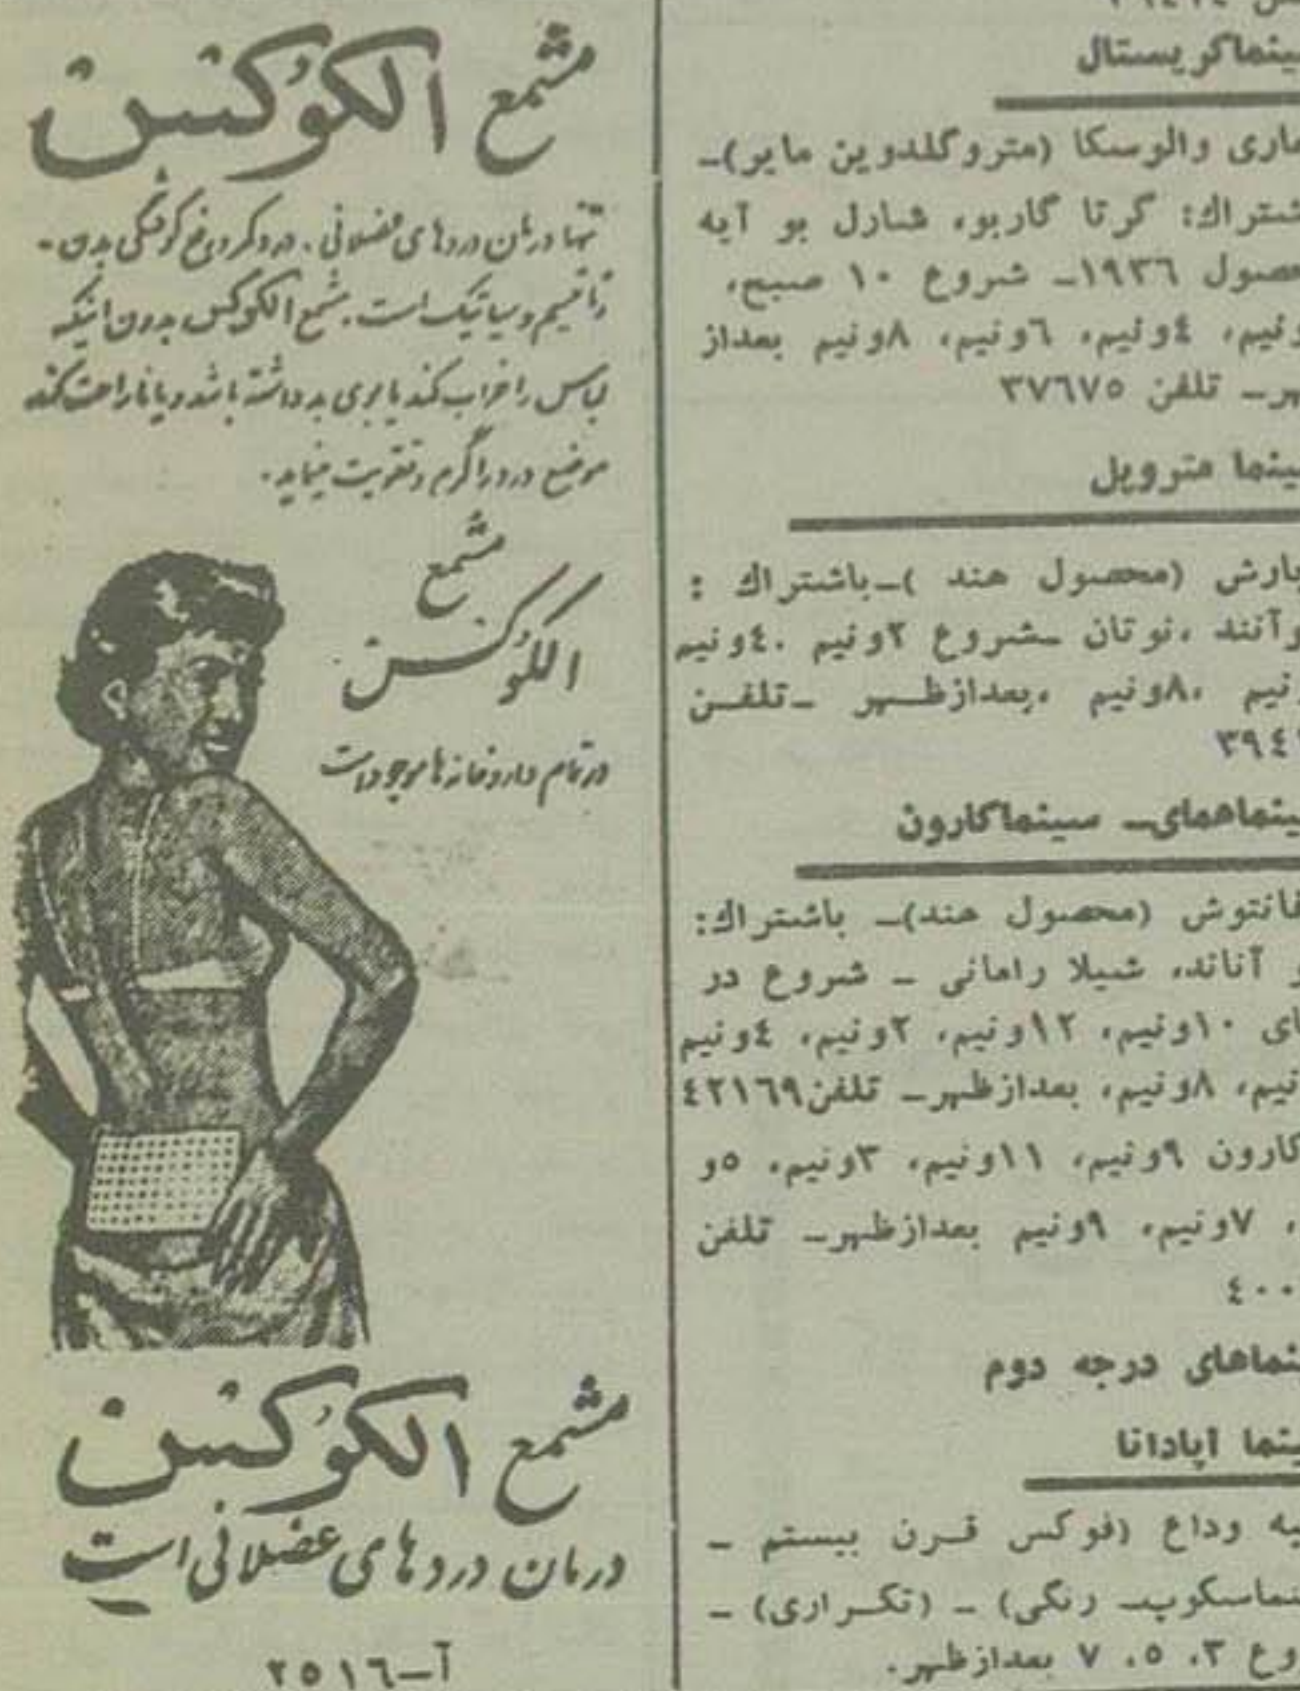 سینما کریستال
ماری والوسکا (متروگلدوین مایر)ـ
شتراك: گرتا گاربو، شارل بو آیه
حصول ۱۹۳٦ـ شروع ۱۰ صبح،
ونیم، ٤ونیم، ٦ونیم، ۸ونیم بعداز
هرـ تلفن ۳۷٦۷٥
سینما متروپل
بارش (محصول هند )ـباشتراك :
وآنند ،نوتان ـشروع ۲ونیم ،٤ونیم
ونیم ،۸ونیم ،بعدازظهر ـتلفن
۳۹٤
سینماهمایـ سینماکارون
فانتوش (محصول هند)ـ باشتراك:
و آناند، شیلا رامانی ـ شروع در
ای ۱۰ونیم، ۱۲ونیم، ۲ونیم، ٤ونیم
ونیم، ۸ونیم، بعدازظهرـ تلفن٤۲۱٦۹
کارون ۹ونیم، ۱۱ونیم، ۳ونیم، ٥و
، ۷ونیم، ۹ونیم بعدازظهرـ تلفن
٤۰۰
نماهای درجه دوم
سینما آپادانا
یه وداع (فوکس قرن بیستم ـ
نماسکوپـ رنگی) ـ (تکراری) ـ
وع ۳، ٥، ۷ بعدازظهر.
مشمع الکوکس
تنها درمان دردهای عضلانی، درد کمر و رفع کوفتگی بدن ـ
رماتیسم و سیاتیک است. مشمع الکوکس بدون اینکه
لباس را خراب کند یا بوی بد داشته باشد و یا ناراحت کند
موضع درد را گرم و تقویت مینماید.
مشمع
الکوکس
در تمام داروخانه‌ها موجود است
مشمع الکوکس
درمان دردهای عضلانی است
آ–۲٥۱٦